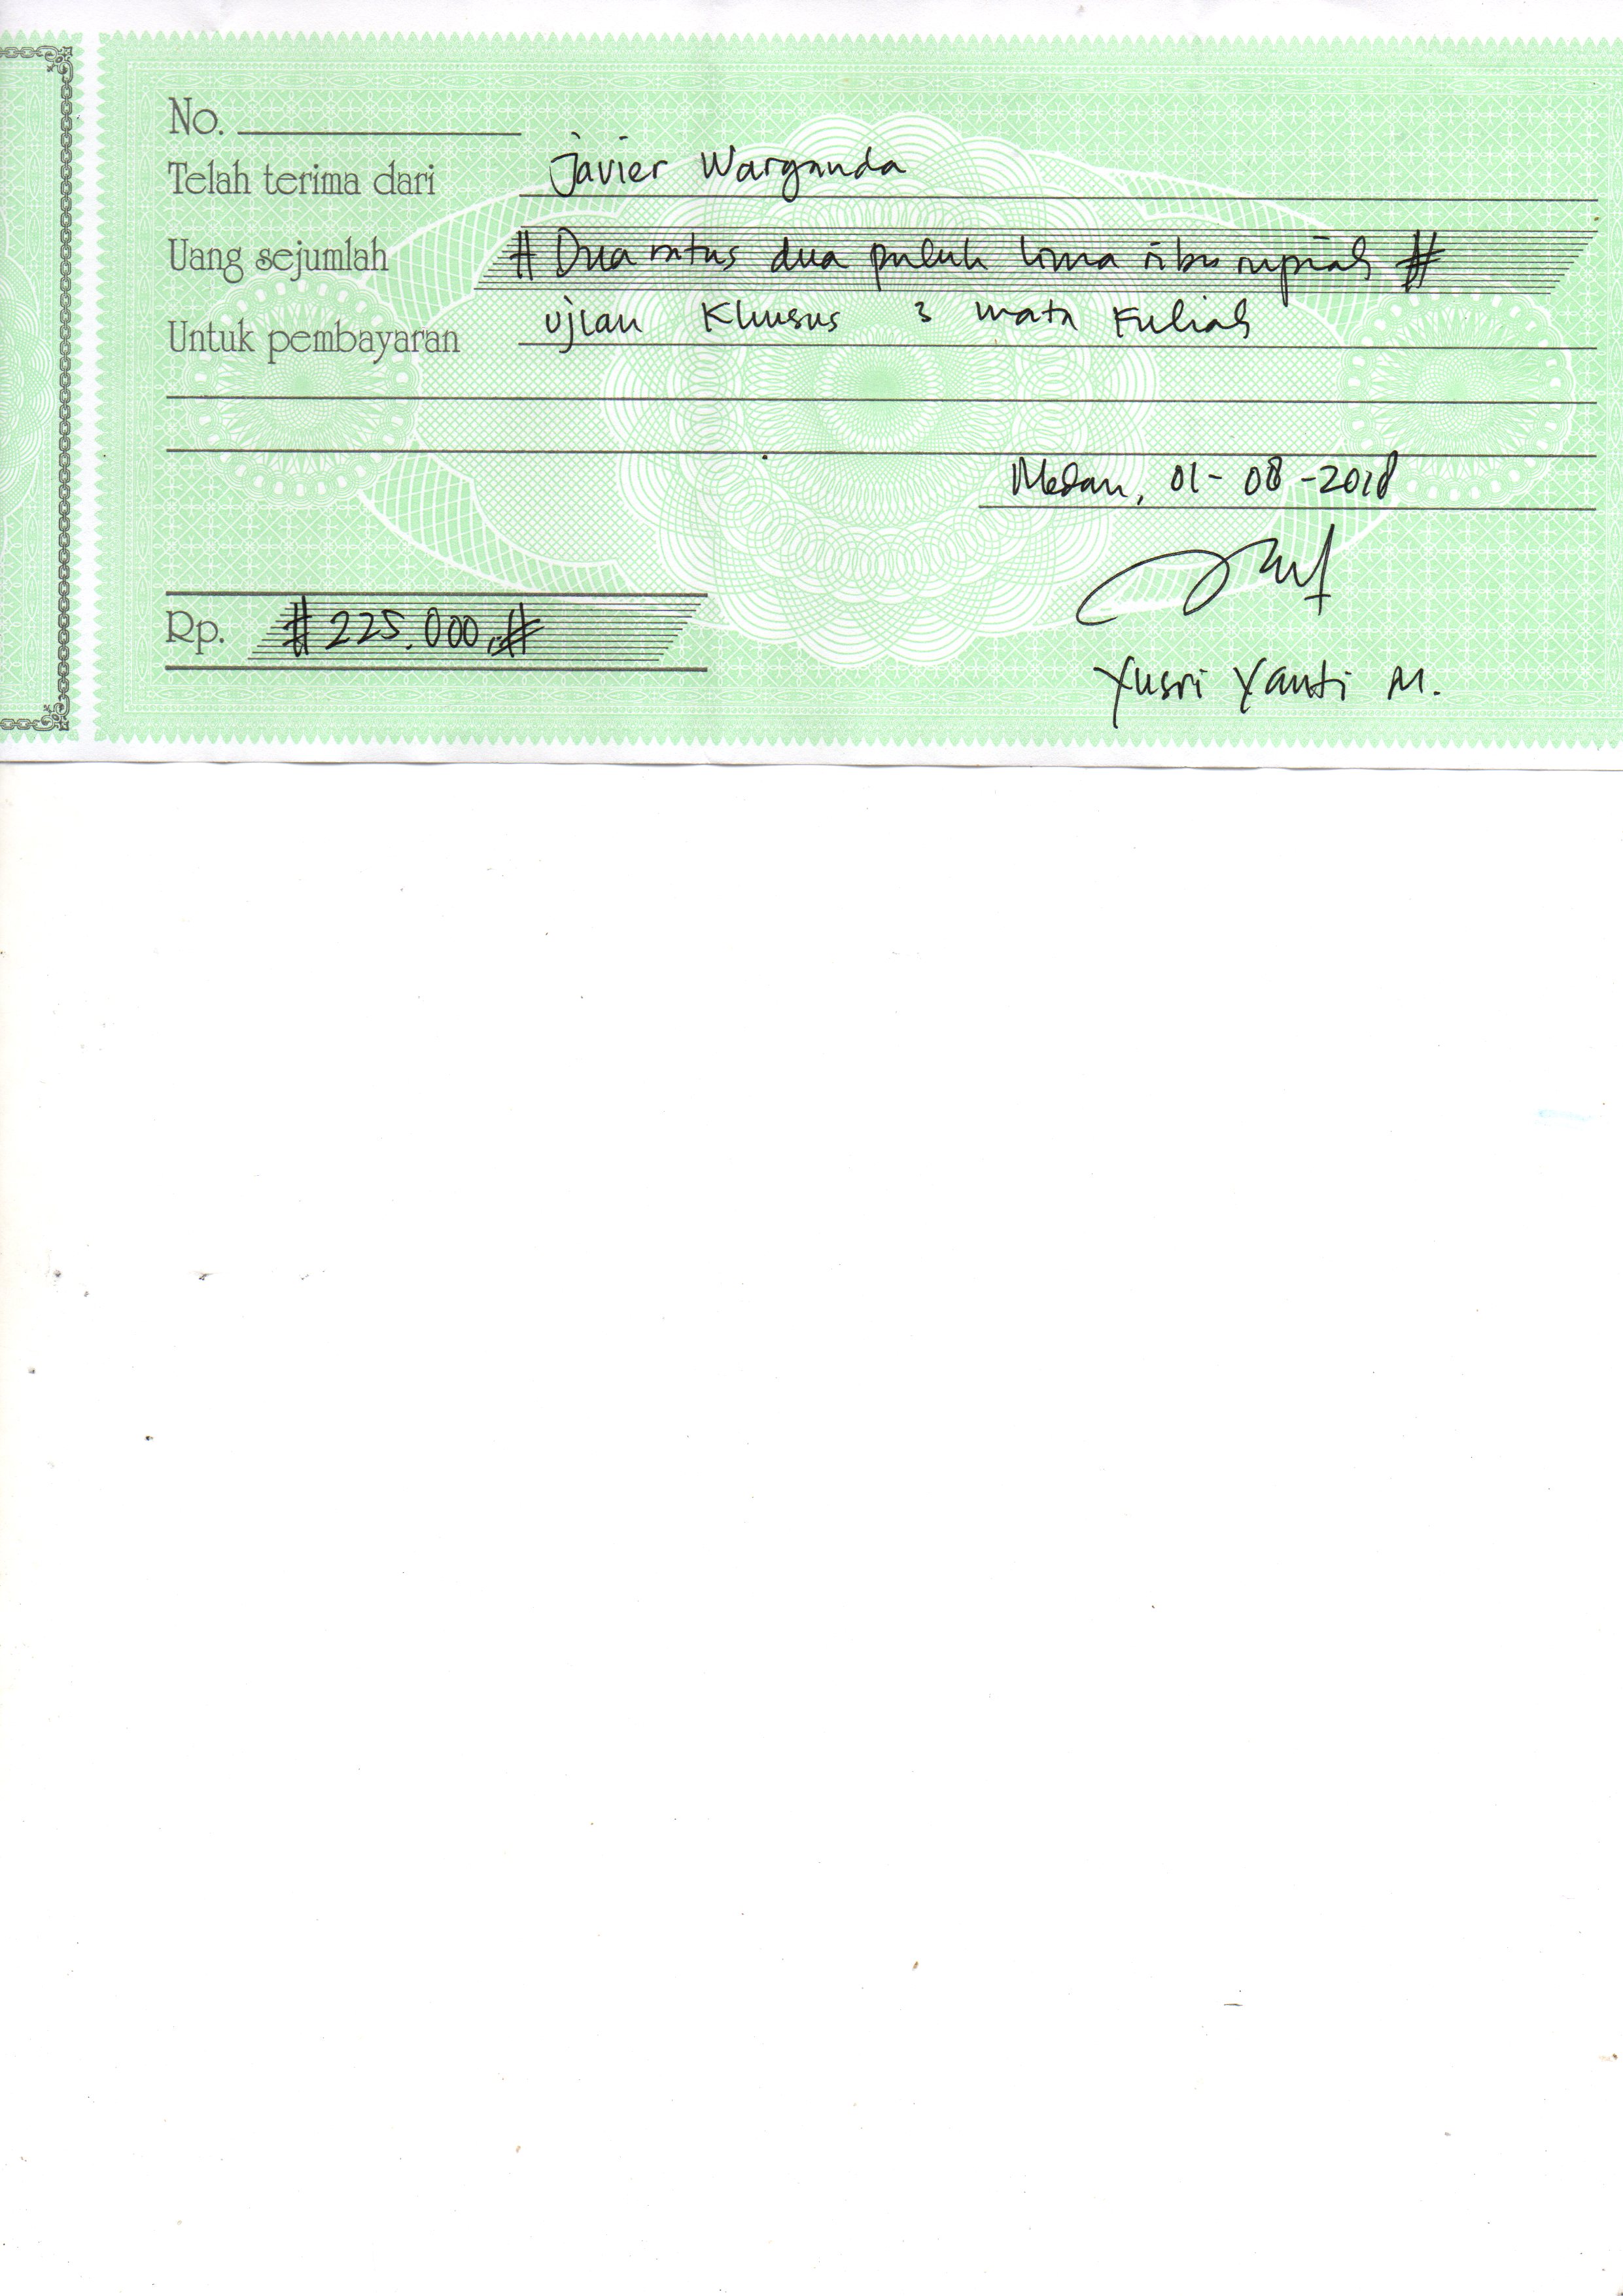 No.
Telah terima dari Javier Warganda
Uang sejumlah # Dua ratus dua puluh lima ribu rupiah #
Untuk pembayaran ujian Khusus 3 mata Kuliah
Medan, 01-08-2018
Rp. # 225.000,-#
Yusri Yanti M.